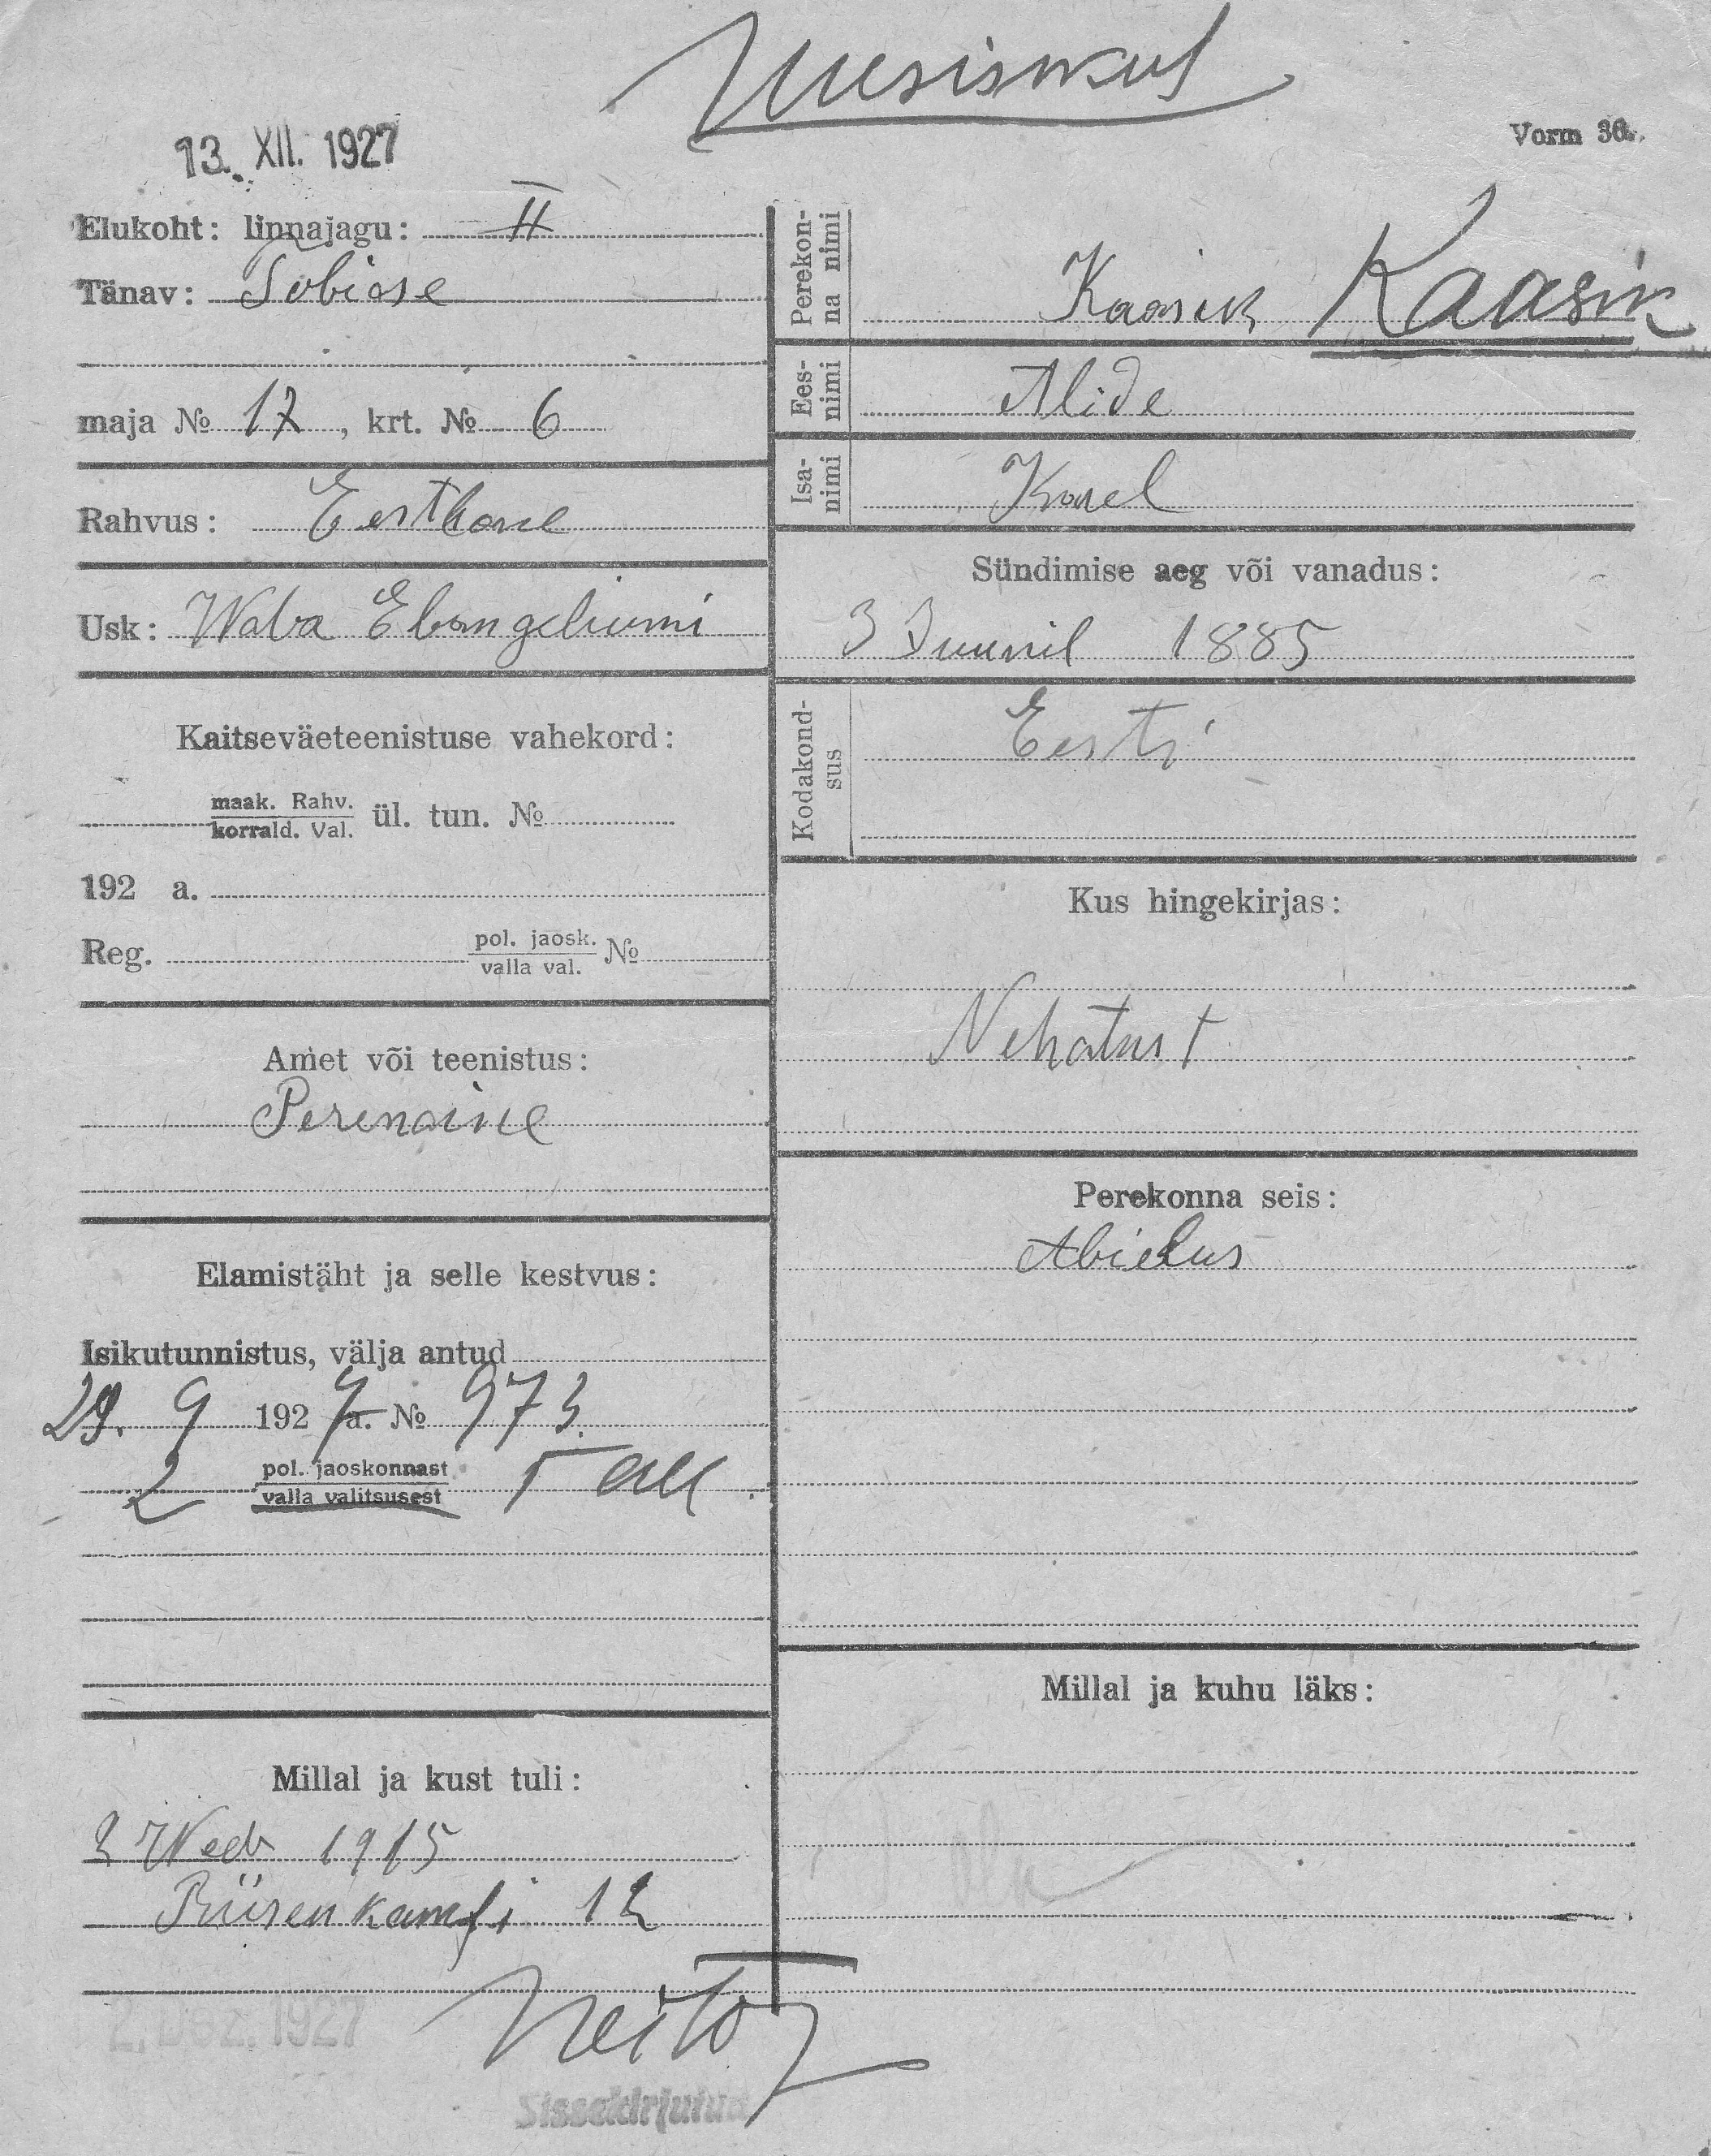 Uusisikul
13. XII. 1927
Vorm 36.
Elukoht: linnajagu: II
Tänav: Tobiase
maja № 17, krt. № 6
Rahvus: Eestlane
Usk: Waba Ebangeliumi
Kaitseväeteenistuse vahekord:
maak. Rahv.
korrald. Val. ül. tun. №
192 a.
Reg. pol. jaosk.
valla val. №
Amet või teenistus:
Perenaine
Elamistäht ja selle kestvus:
Isikutunnistus, välja antud
29. 9 1927 a. № 973.
2 pol. jaoskonnast Tall.
valla valitsusest
Millal ja kust tuli:
2 Weeb 1915
12
2. Dez. 1927
Sissekirjutud
Perekon-
na nimi
Kaasik Kaasik
Ees-
nimi
Alide
Isa-
nimi
Karel
Sündimise aeg või vanadus:
3 Juunil 1885
Kodakond-
sus
Eesti
Kus hingekirjas:
Nehatust
Perekonna seis:
Abielus
Millal ja kuhu läks: